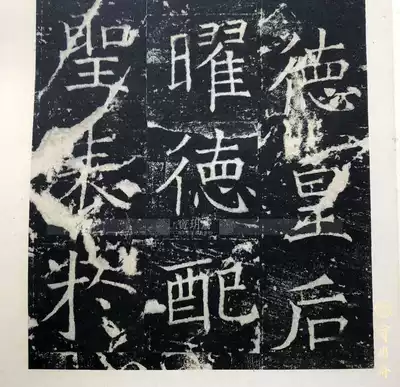 德皇后
曜德配
聖表於